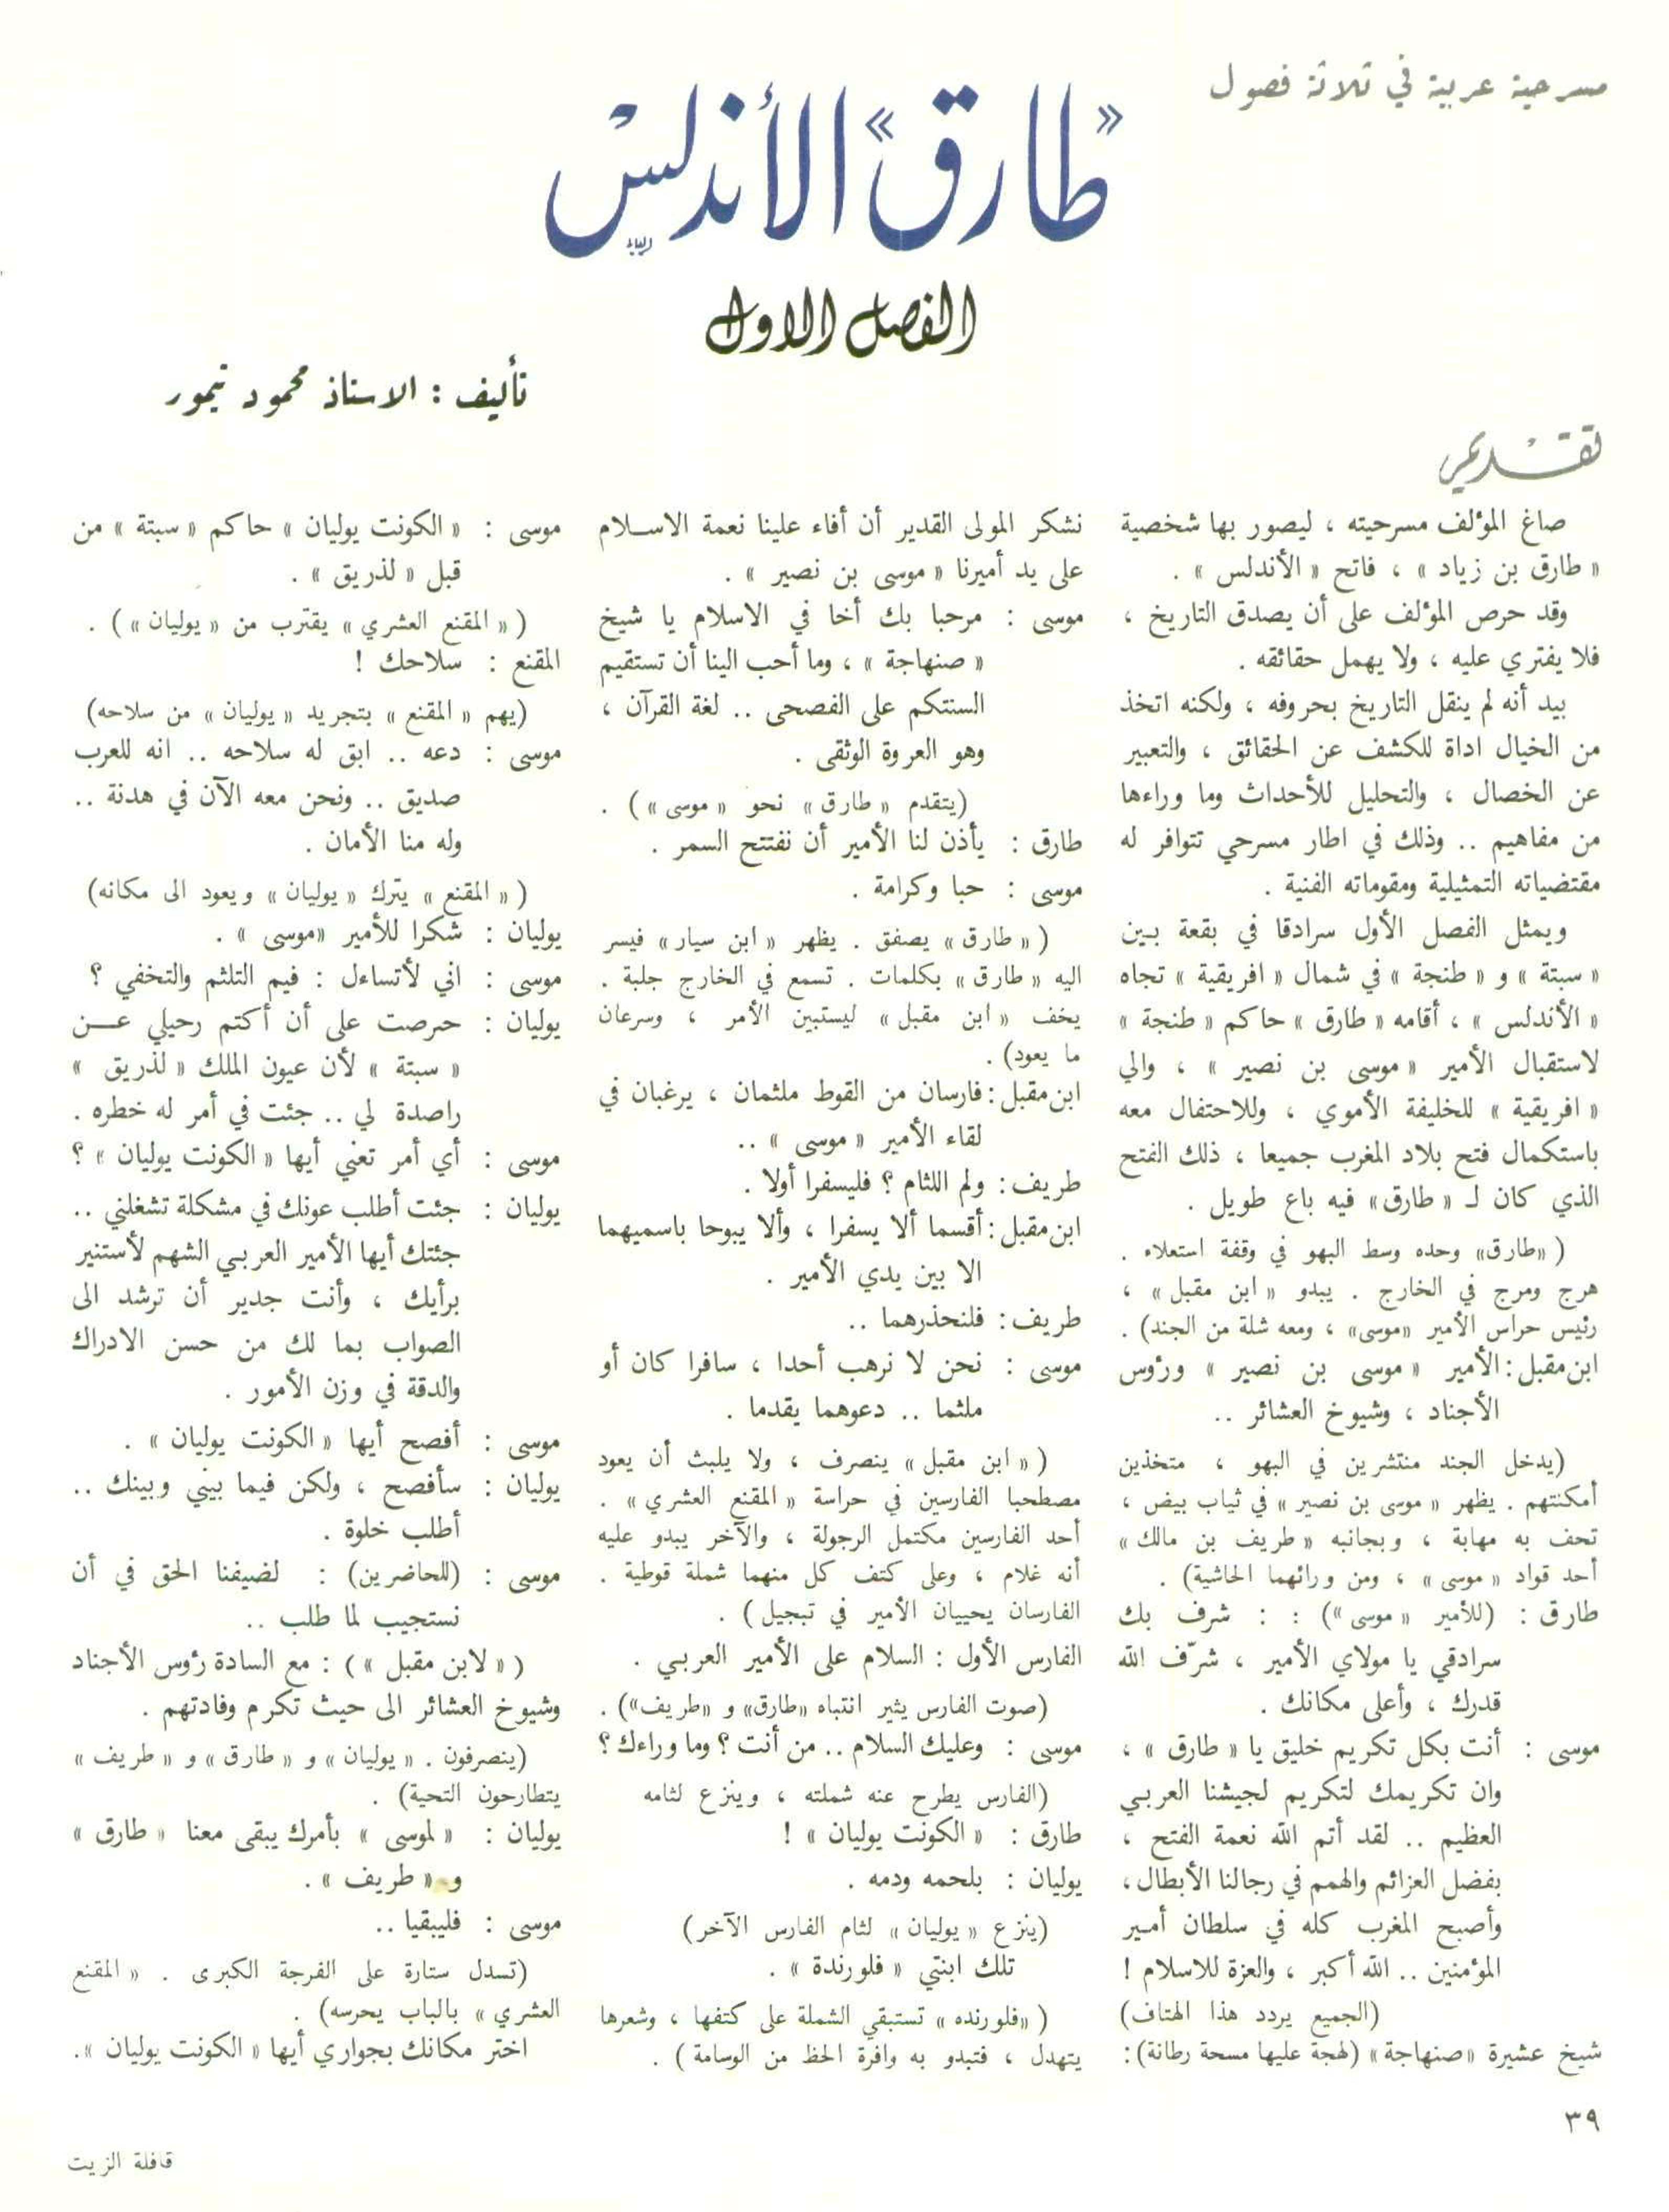 مسرحية عربية في ثلاثة فصول
«طارق» الأندلس
الفصل الاول
تأليف : الاستاذ محمود تيمور
تقديم
صاغ المؤلف مسرحيته ، ليصور بها شخصية
« طارق بن زياد » ، فاتح « الأندلس » .
وقد حرص المؤلف على أن يصدق التاريخ ،
فلا يفتري عليه ، ولا يهمل حقائقه .
بيد أنه لم ينقل التاريخ بحروفه ، ولكنه اتخذ
من الخيال اداة للكشف عن الحقائق ، والتعبير
عن الخصال ، والتحليل للأحداث وما وراءها
من مفاهيم .. وذلك في اطار مسرحي تتوافر له
مقتضياته التمثيلية ومقوماته الفنية .
ويمثل الفصل الأول سرادقا في بقعة بين
« سبتة » و « طنجة » في شمال « افريقية » تجاه
« الأندلس » ، أقامه « طارق » حاكم « طنجة »
لاستقبال الأمير « موسى بن نصير » ، والي
« افريقية » للخليفة الأموي ، وللاحتفال معه
باستكمال فتح بلاد المغرب جميعا ، ذلك الفتح
الذي كان لـ « طارق» فيه باع طويل .
( «طارق» وحده وسط البهو في وقفة استعلاء .
هرج ومرج في الخارج . يبدو « ابن مقبل » ،
رئيس حراس الأمير «موسى» ، ومعه شلة من الجند) .
ابن مقبل : الأمير « موسى بن نصير » ورؤس
الأجناد ، وشيوخ العشائر ..
(يدخل الجند منتشرين في البهو ، متخذين
أمكنتهم . يظهر « موسى بن نصير » في ثياب بيض ،
تحف به مهابة ، وبجانبه « طريف بن مالك »
أحد قواد « موسى » ، ومن ورائهما الحاشية) .
طارق : (للأمير « موسى ») : : شرف بك
سرادقي يا مولاي الأمير ، شرّف الله
قدرك ، وأعلى مكانك .
موسى : أنت بكل تكريم خليق يا « طارق » ،
وان تكريمك لتكريم لجيشنا العربي
العظيم .. لقد أتم الله نعمة الفتح ،
بفضل العزائم والهمم في رجالنا الأبطال ،
وأصبح المغرب كله في سلطان أمير
المؤمنين .. الله أكبر ، والعزة للاسلام !
(الجميع يردد هذا الهتاف)
شيخ عشيرة «صنهاجة» (لهجة عليها مسحة رطانة) :
نشكر المولى القدير أن أفاء علينا نعمة الاسلام
على يد أميرنا « موسى بن نصير » .
موسى : مرحبا بك أخا في الاسلام يا شيخ
« صنهاجة » ، وما أحب الينا أن تستقيم
السنتكم على الفصحى .. لغة القرآن ،
وهو العروة الوثقى .
(يتقدم « طارق» نحو «موسى») .
طارق : يأذن لنا الأمير أن نفتتح السمر .
موسى : حبا وكرامة .
( « طارق» يصفق . يظهر « ابن سيار» فيسر
اليه « طارق» بكلمات . تسمع في الخارج جلبة .
يخف « ابن مقبل» ليستبين الأمر ، وسرعان
ما يعود) .
ابن مقبل : فارسان من القوط ملثمان ، يرغبان في
لقاء الأمير « موسى » ..
طريف : ولم اللثام ؟ فليسفرا أولا .
ابن مقبل : أقسما ألا يسفرا ، وألا يبوحا باسميهما
الا بين يدي الأمير .
طريف : فلنحذرهما ..
موسى : نحن لا نرهب أحدا ، سافرا كان أو
ملثما .. دعوهما يقدما .
( « ابن مقبل» ينصرف ، ولا يلبث أن يعود
مصطحبا الفارسين في حراسة « المقنع العشري» .
أحد الفارسين مكتمل الرجولة ، والآخر يبدو عليه
أنه غلام ، وعلى كتف كل منهما شملة قوطية .
الفارسان يحييان الأمير في تبجيل ) .
الفارس الأول : السلام على الأمير العربي .
(صوت الفارس يثير انتباه «طارق» و «طريف») .
موسى : وعليك السلام .. من أنت ؟ وما وراءك ؟
(الفارس يطرح عنه شملته ، وينزع لثامه
طارق : « الكونت يوليان » !
يوليان : بلحمه ودمه .
(ينزع « يوليان» لثام الفارس الآخر)
تلك ابنتي « فلورندة » .
( «فلورنده» تستبقي الشملة على كتفها ، وشعرها
يتهدل ، فتبدو به وافرة الحظ من الوسامة ) .
موسى : « الكونت يوليان » حاكم « سبتة » من
قبل « لذريق » .
( « المقنع العشري» يقترب من « يوليان» ) .
المقنع : سلاحك !
(يهم « المقنع » بتجريد « يوليان» من سلاحه)
موسى : دعه .. ابق له سلاحه .. انه للعرب
صديق .. ونحن معه الآن في هدنة ..
وله منا الأمان .
( « المقنع » يترك « يوليان» ويعود الى مكانه)
يوليان : شكرا للأمير «موسى » .
موسى : اني لأتساءل : فيم التلثم والتخفي ؟
يوليان : حرصت على أن أكتم رحيلي عن
« سبتة » لأن عيون الملك « لذريق »
راصدة لي .. جئت في أمر له خطره .
موسى : أي أمر تعني أيها « الكونت يوليان » ؟
يوليان : جئت أطلب عونك في مشكلة تشغلني ..
جئتك أيها الأمير العربي الشهم لأستنير
برأيك ، وأنت جدير أن ترشد الى
الصواب بما لك من حسن الادراك
والدقة في وزن الأمور .
موسى : أفصح أيها « الكونت يوليان» .
يوليان : سأفصح ، ولكن فيما بيني وبينك ..
أطلب خلوة .
موسى : (للحاضرين) : لضيفنا الحق في أن
نستجيب لما طلب ..
( « لابن مقبل » ) : مع السادة رؤس الأجناد
وشيوخ العشائر الى حيث تكرم وفادتهم .
(ينصرفون . « يوليان» و « طارق» و « طريف »
يتطارحون التحية) .
يوليان : « لموسى » بأمرك يبقى معنا « طارق »
و « طريف » .
موسى : فليبقيا ..
(تسدل ستارة على الفرجة الكبرى . « المقنع
العشري » بالباب يحرسه) .
اختر مكانك بجواري أيها « الكونت يوليان » .
٣٩
قافلة الزيت